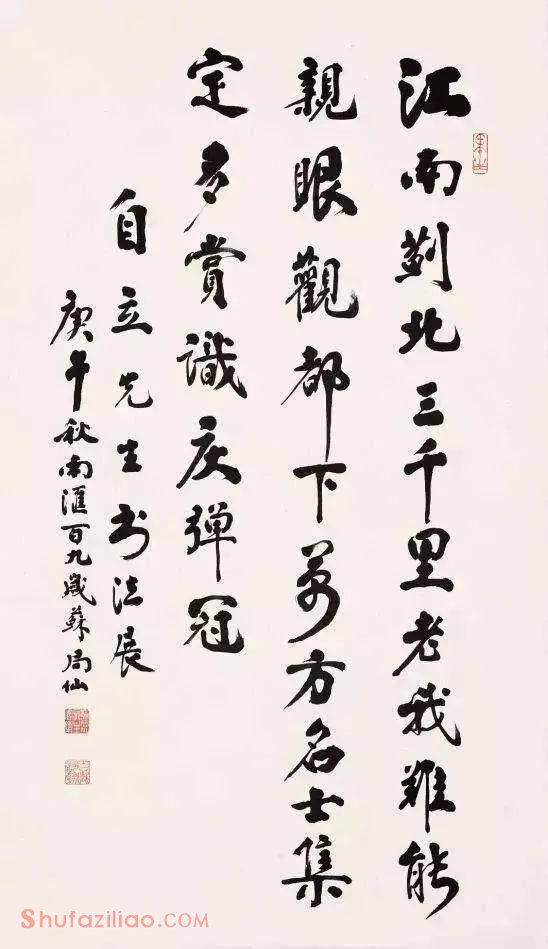 江南蓟北三千里老我難能
親眼觀都下萬方名士集
定多賞識庆弹冠
自立先生书法展
庚午秋南滙百九歲蘇局仙
Shufaziliao.COM